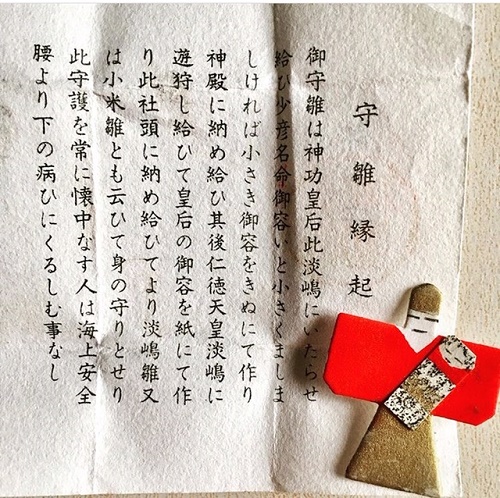 守雛縁起
御守雛は神功皇后此淡嶋にいたらせ
給ひ少彦名命御容いと小さくましま
しければ小さき御容をきぬにて作り
神殿に納め給ひ其後仁徳天皇淡嶋に
遊狩し給ひて皇后の御容を紙にて作
り此社頭に納め給ひてより淡嶋雛又
は小米雛とも云ひて身の守りとせり
此守護を常に懐中なす人は海上安全
腰より下の病ひにくるしむ事なし